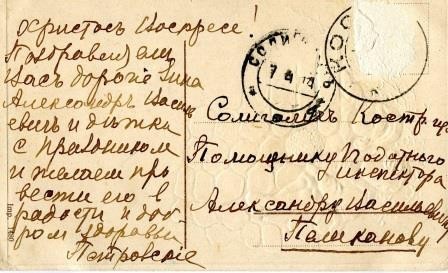 Христосъ Воскресе!
Поздравляемъ
Васъ дорогіе Зина
Александръ Василь
евичъ и дѣтки
с праздником
и желаем про
вести его в
радости и доб
ром здоровьи
Петровскіе
СОЛИГ
7 4
Солигаличъ Костр. губ
Помощнику Податного
инспектора
Александру Васильевичу
Пешканову
Imp.